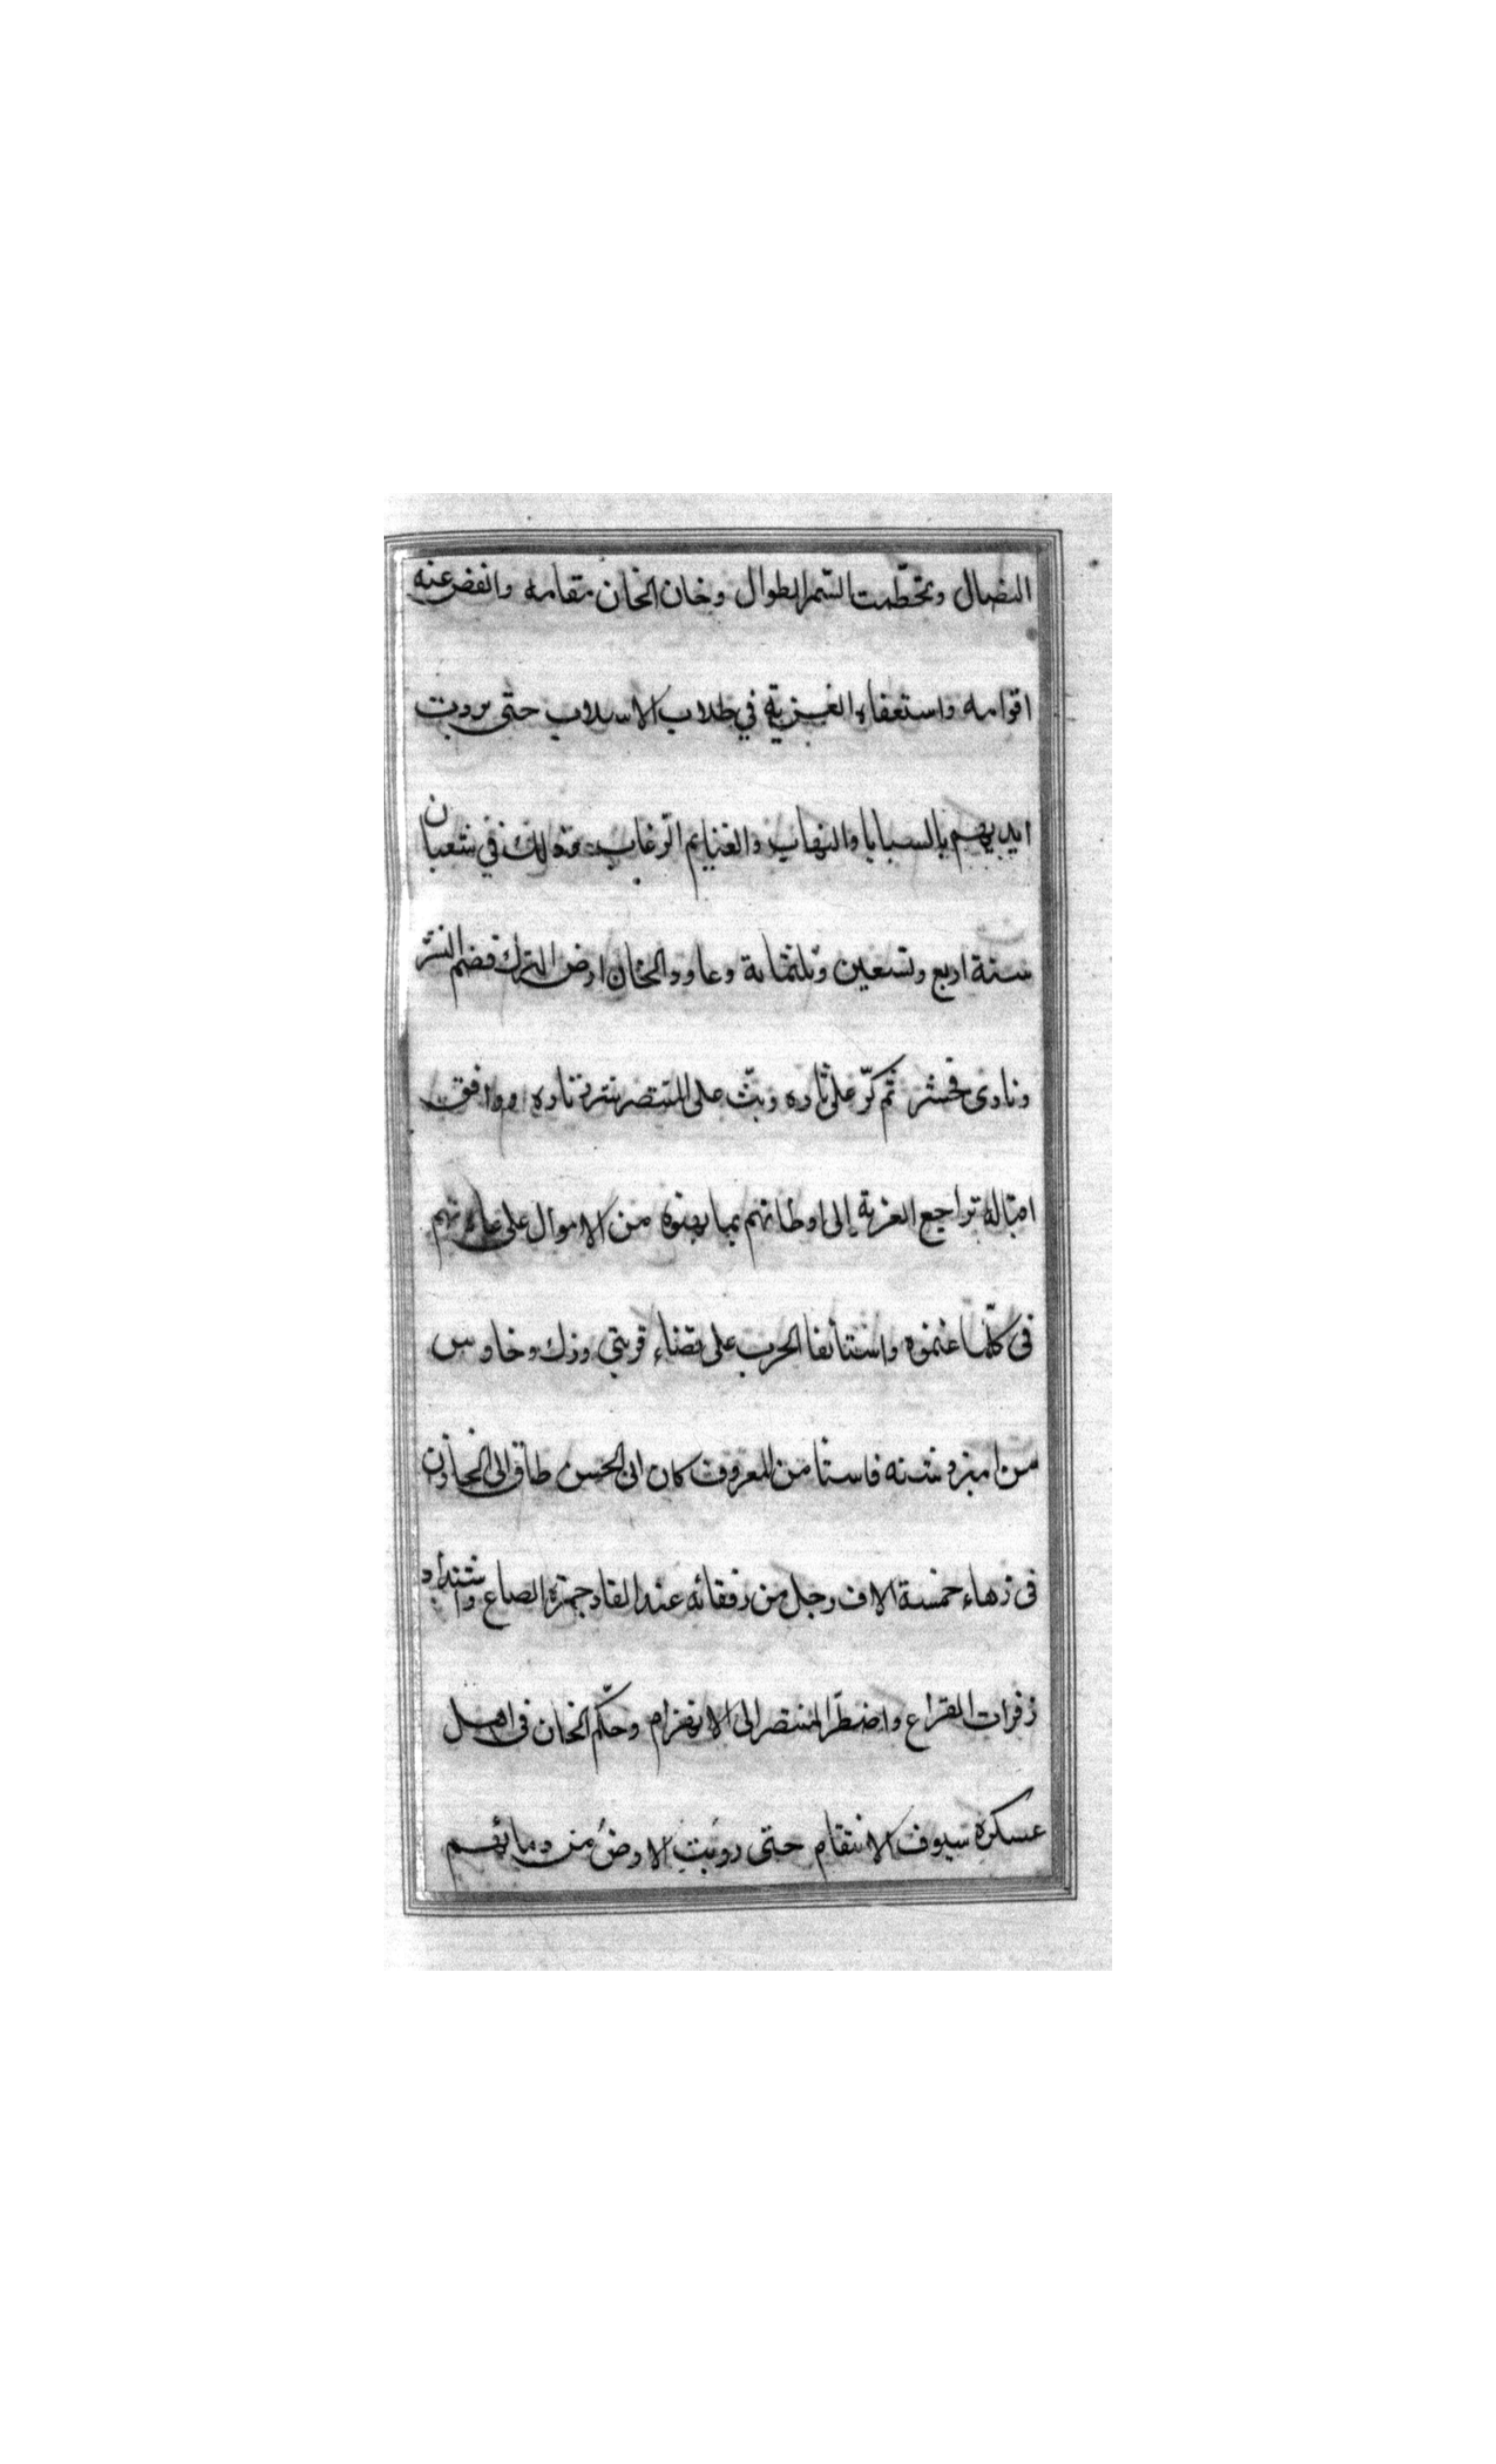 النضال وتحطمت السمر الطوال وخان الخان مقامه وانفض عنه
اقوامه واستعفاه الغزية في طلاب الاسلاب حتى بردت
ايديهم بالسبايا والنهاب والغنايم الرغاب وذلك في شعبان
سنة اربع وتسعين وثلثمائة وعاود الخان ارض الترك فضم النشر
ونادى فحشر ثم كرّ على ثاره وبثّ على المنتصر شرر ناره ووافق
اقباله تراجع الغزية الى اوطانهم بما نهبوه من الاموال على عادتهم
فى كلّما غنموه واستأنفا الحرب على فضاء قريتي دزك وخاوس
من اسروشنه فاستأمن المعروف كان ابى الحسن طاق الى الخان
فى زهاء خمسة الاف رجل من رفقائه عند اتقاد جمرة المصاع واشتداد
زفرات القراع واضطرّ المنتصر الى الانهزام وحكّم الخان فى اهل
عسكره سيوف الانتقام حتى رويت الارضُ من دمائهم